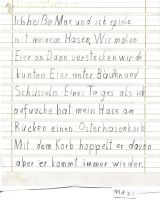 Ich heiße Max und ich spiele
mit meinem Hasen. Wir malen
Eier an. Dann verstecken wir die
bunten Eier unter Bäcken und
Schüsseln. Eines Tages als ich
aufwache hat mein Hase am
Rücken einen Osterhasenkorb
Mit dem Korb hoppelt er davon
aber er kommt immer wieder.